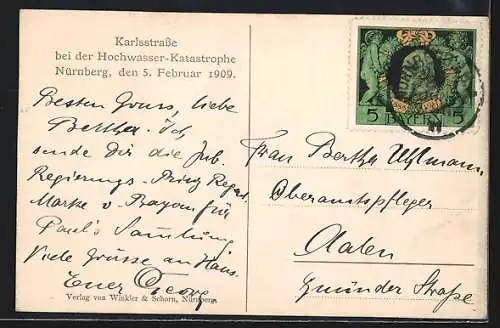 Karlsstraße
bei der Hochwasser-Katastrophe
Nürnberg, den 5. Februar 1909.
Besten Gruss, liebe
Bertha. Ich
sende Dir die Jub.
Regierungs-Prinz Regent
Marke v. Bayern für
Paul's Samlung
Viele Grüsse an Hans.
Euer Georg
Verlag von Winkler & Schorn, Nürnberg.
5 BAYERN 5
Frau Bertha Uhlmann
Oberamtspfleger
Aalen
Gmünder Straße